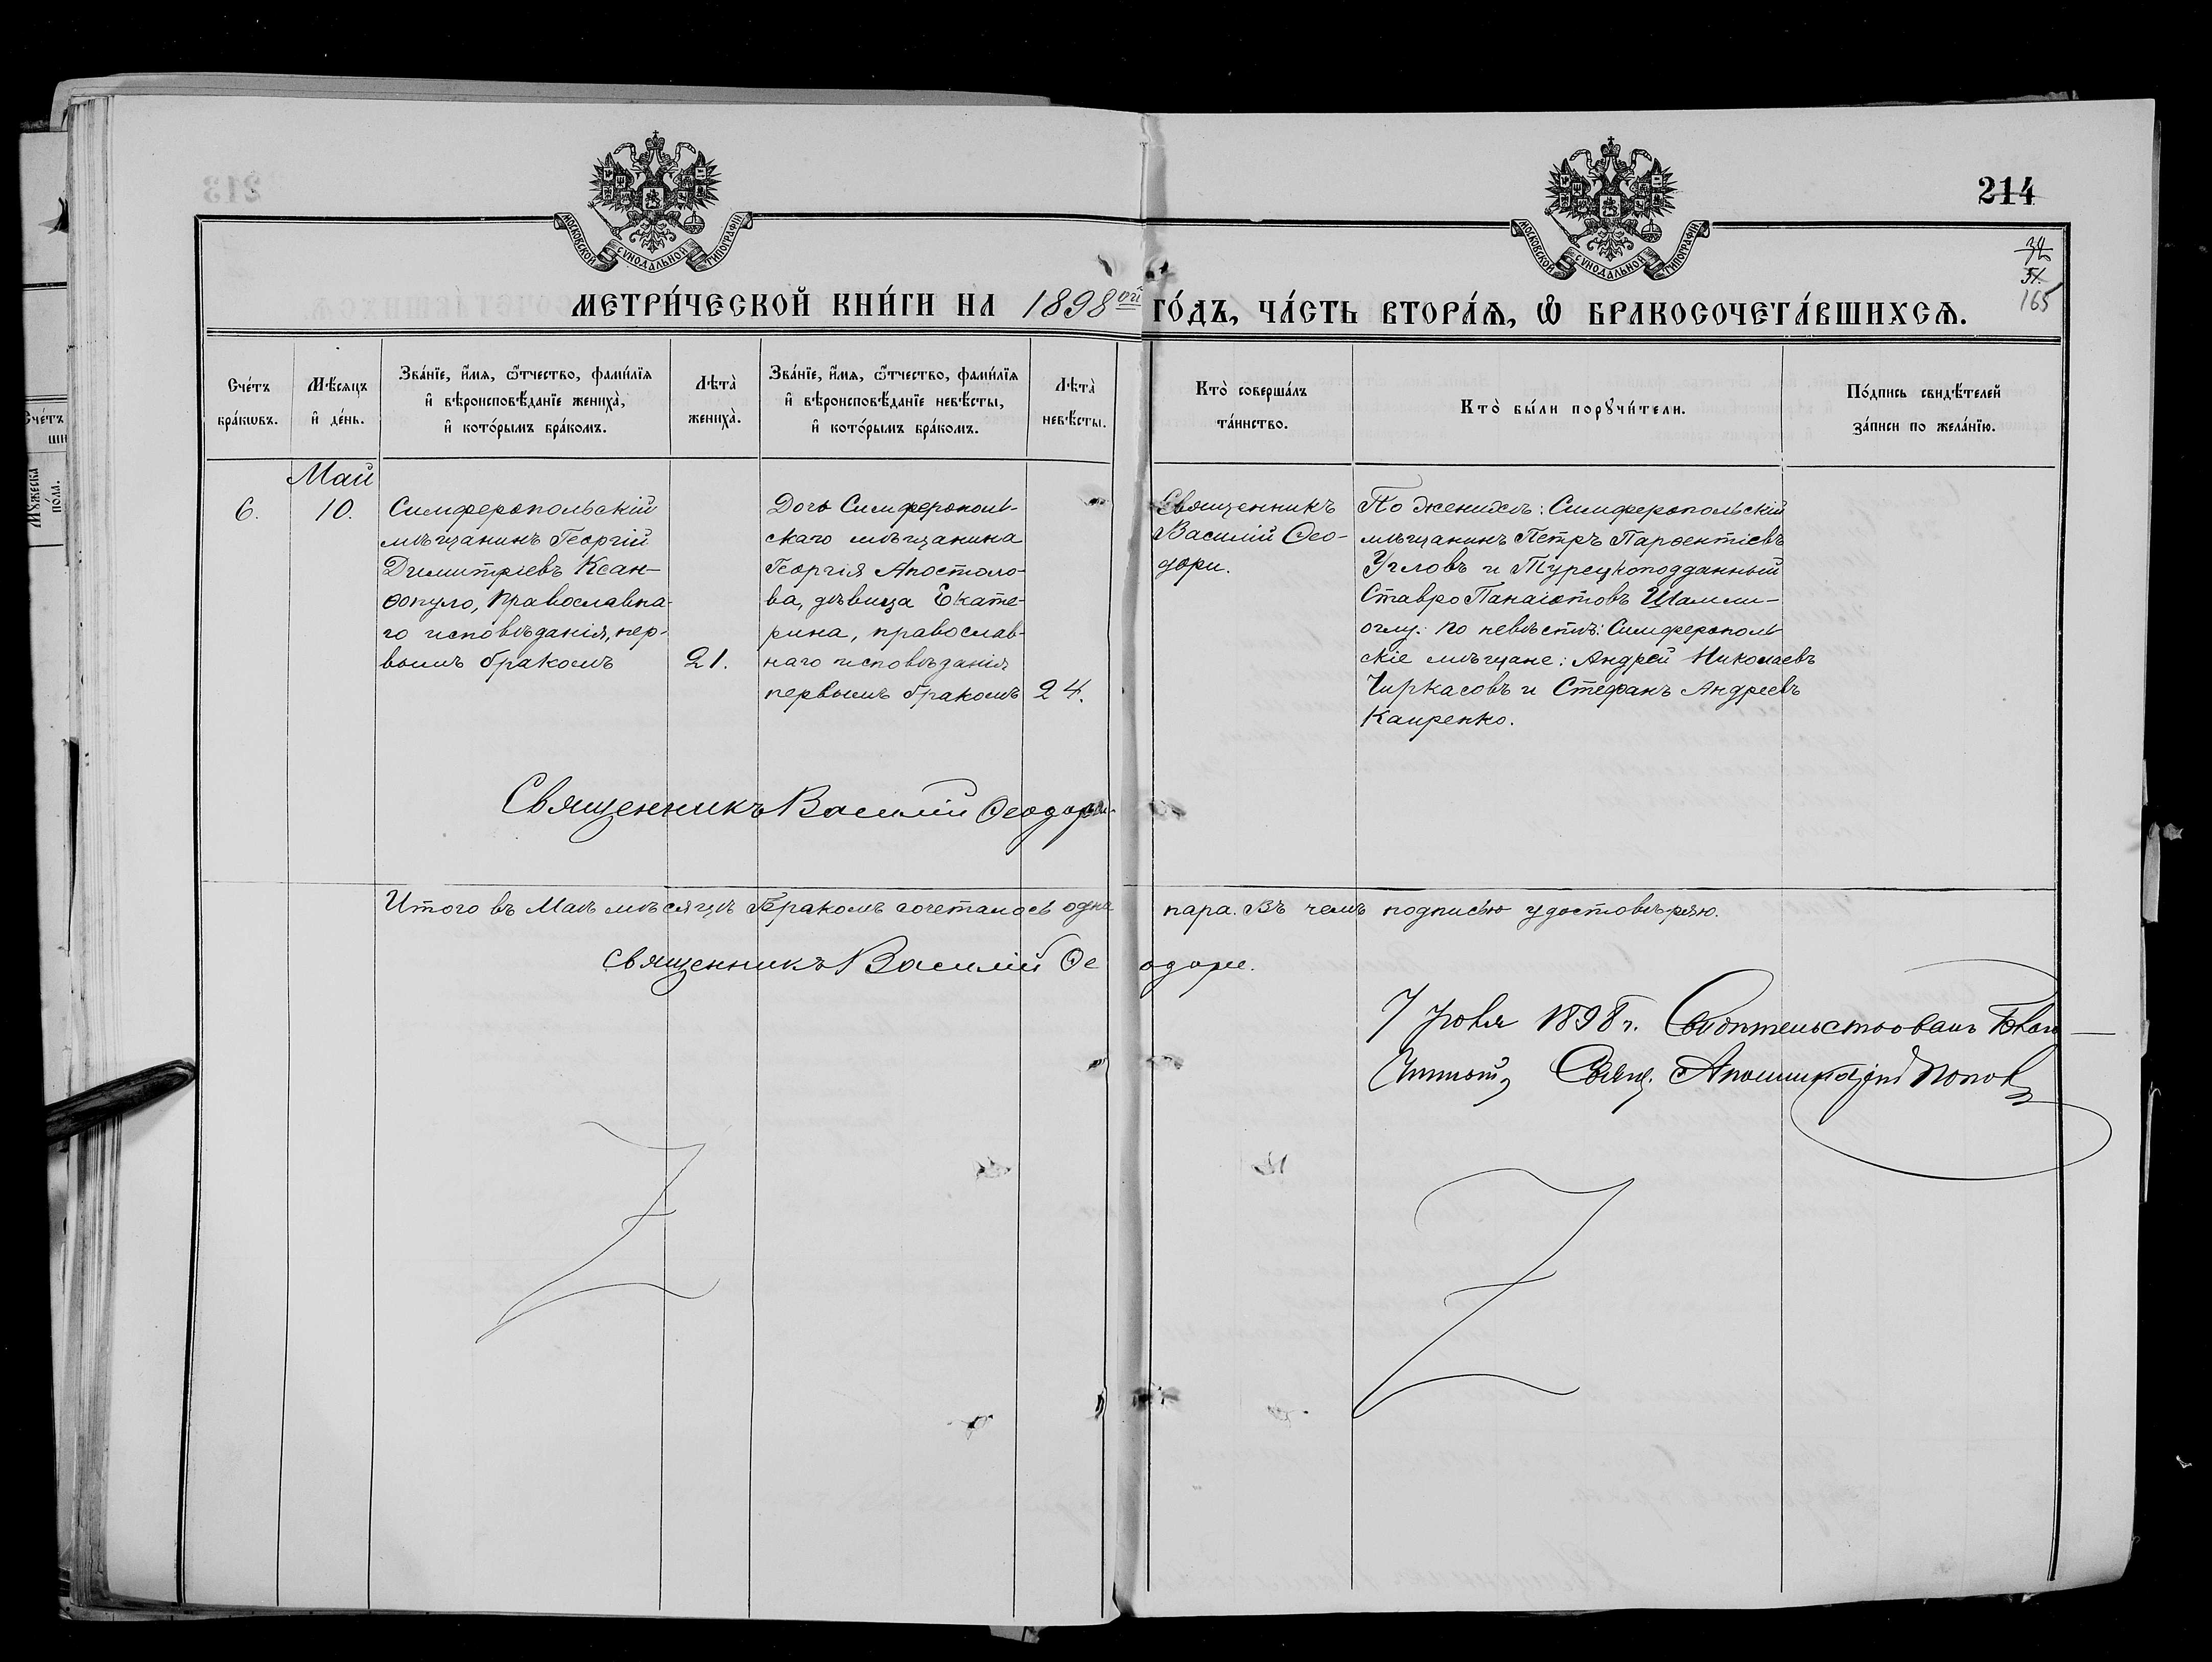 213
214
34
51
165
МОСКОВСКОЙ СѴНОДАЛЬНОЙ ТИПОГРАФІИ
МОСКОВСКОЙ СѴНОДАЛЬНОЙ ТИПОГРАФІИ
МЕТРИ́ЧЕСКОЙ КНИ́ГИ НА 1898ой ГО́ДЪ, ЧА́СТЬ ВТОРА́Ѧ, Ѡ҆ БРАКОСОЧЕТА́ВШИХСѦ.
Сче́тъ
бра́кѡвъ.
Мѣ́сяцъ
и҆ де́нь.
Зва́нїе, и҆́мя, ѻ҆́тчество, фами́лїя
и҆ вѣроисповѣ́данїе жениха̀,
и҆ кото́рымъ бра́комъ.
Лѣта̀
жениха̀.
Зва́нїе, и҆́мя, ѻ҆́тчество, фами́лїя
и҆ вѣроисповѣ́данїе невѣ́сты,
и҆ кото́рымъ бра́комъ.
Лѣта̀
невѣ́сты.
Кто̀ соверша́лъ
та́инство.
Кто̀ бы́ли порꙋчи́тели.
По́дпись свидѣ́телей
за́писи по жела́нїю.
Май
6.
10.
Симферопольскій
мѣщанинъ Георгій
Димитріевъ Ксан-
ѳопуло, Православна-
го исповѣданія, пер-
вымъ бракомъ
21.
Дочь Симферополь-
скаго мѣщанина
Георгія Апостоло-
ва, дѣвица Екате-
рина, православ-
наго исповѣданія
первымъ бракомъ
24.
Священникъ
Василій Ѳео-
дори.
По женихѣ: Симферопольскій
мѣщанинъ Петръ Парѳентіевъ
Угловъ и Турецкоподданный
Ставро Панаіотовъ Шамли-
оглу: по невѣстѣ: Симферополь
скіе мѣщане: Андрей Николаевъ
Чиркасовъ и Стефанъ Андреевъ
Каиренко.
Священникъ Василій Ѳеодори.
Итого въ Маѣ мѣсяцѣ бракомъ сочеталось одна пара. Въ чемъ подписью удостовѣряю.
Священникъ Василій Ѳеодори.
7 Іюня 1898 г. Свидѣтельствовалъ
Свящ. Попов